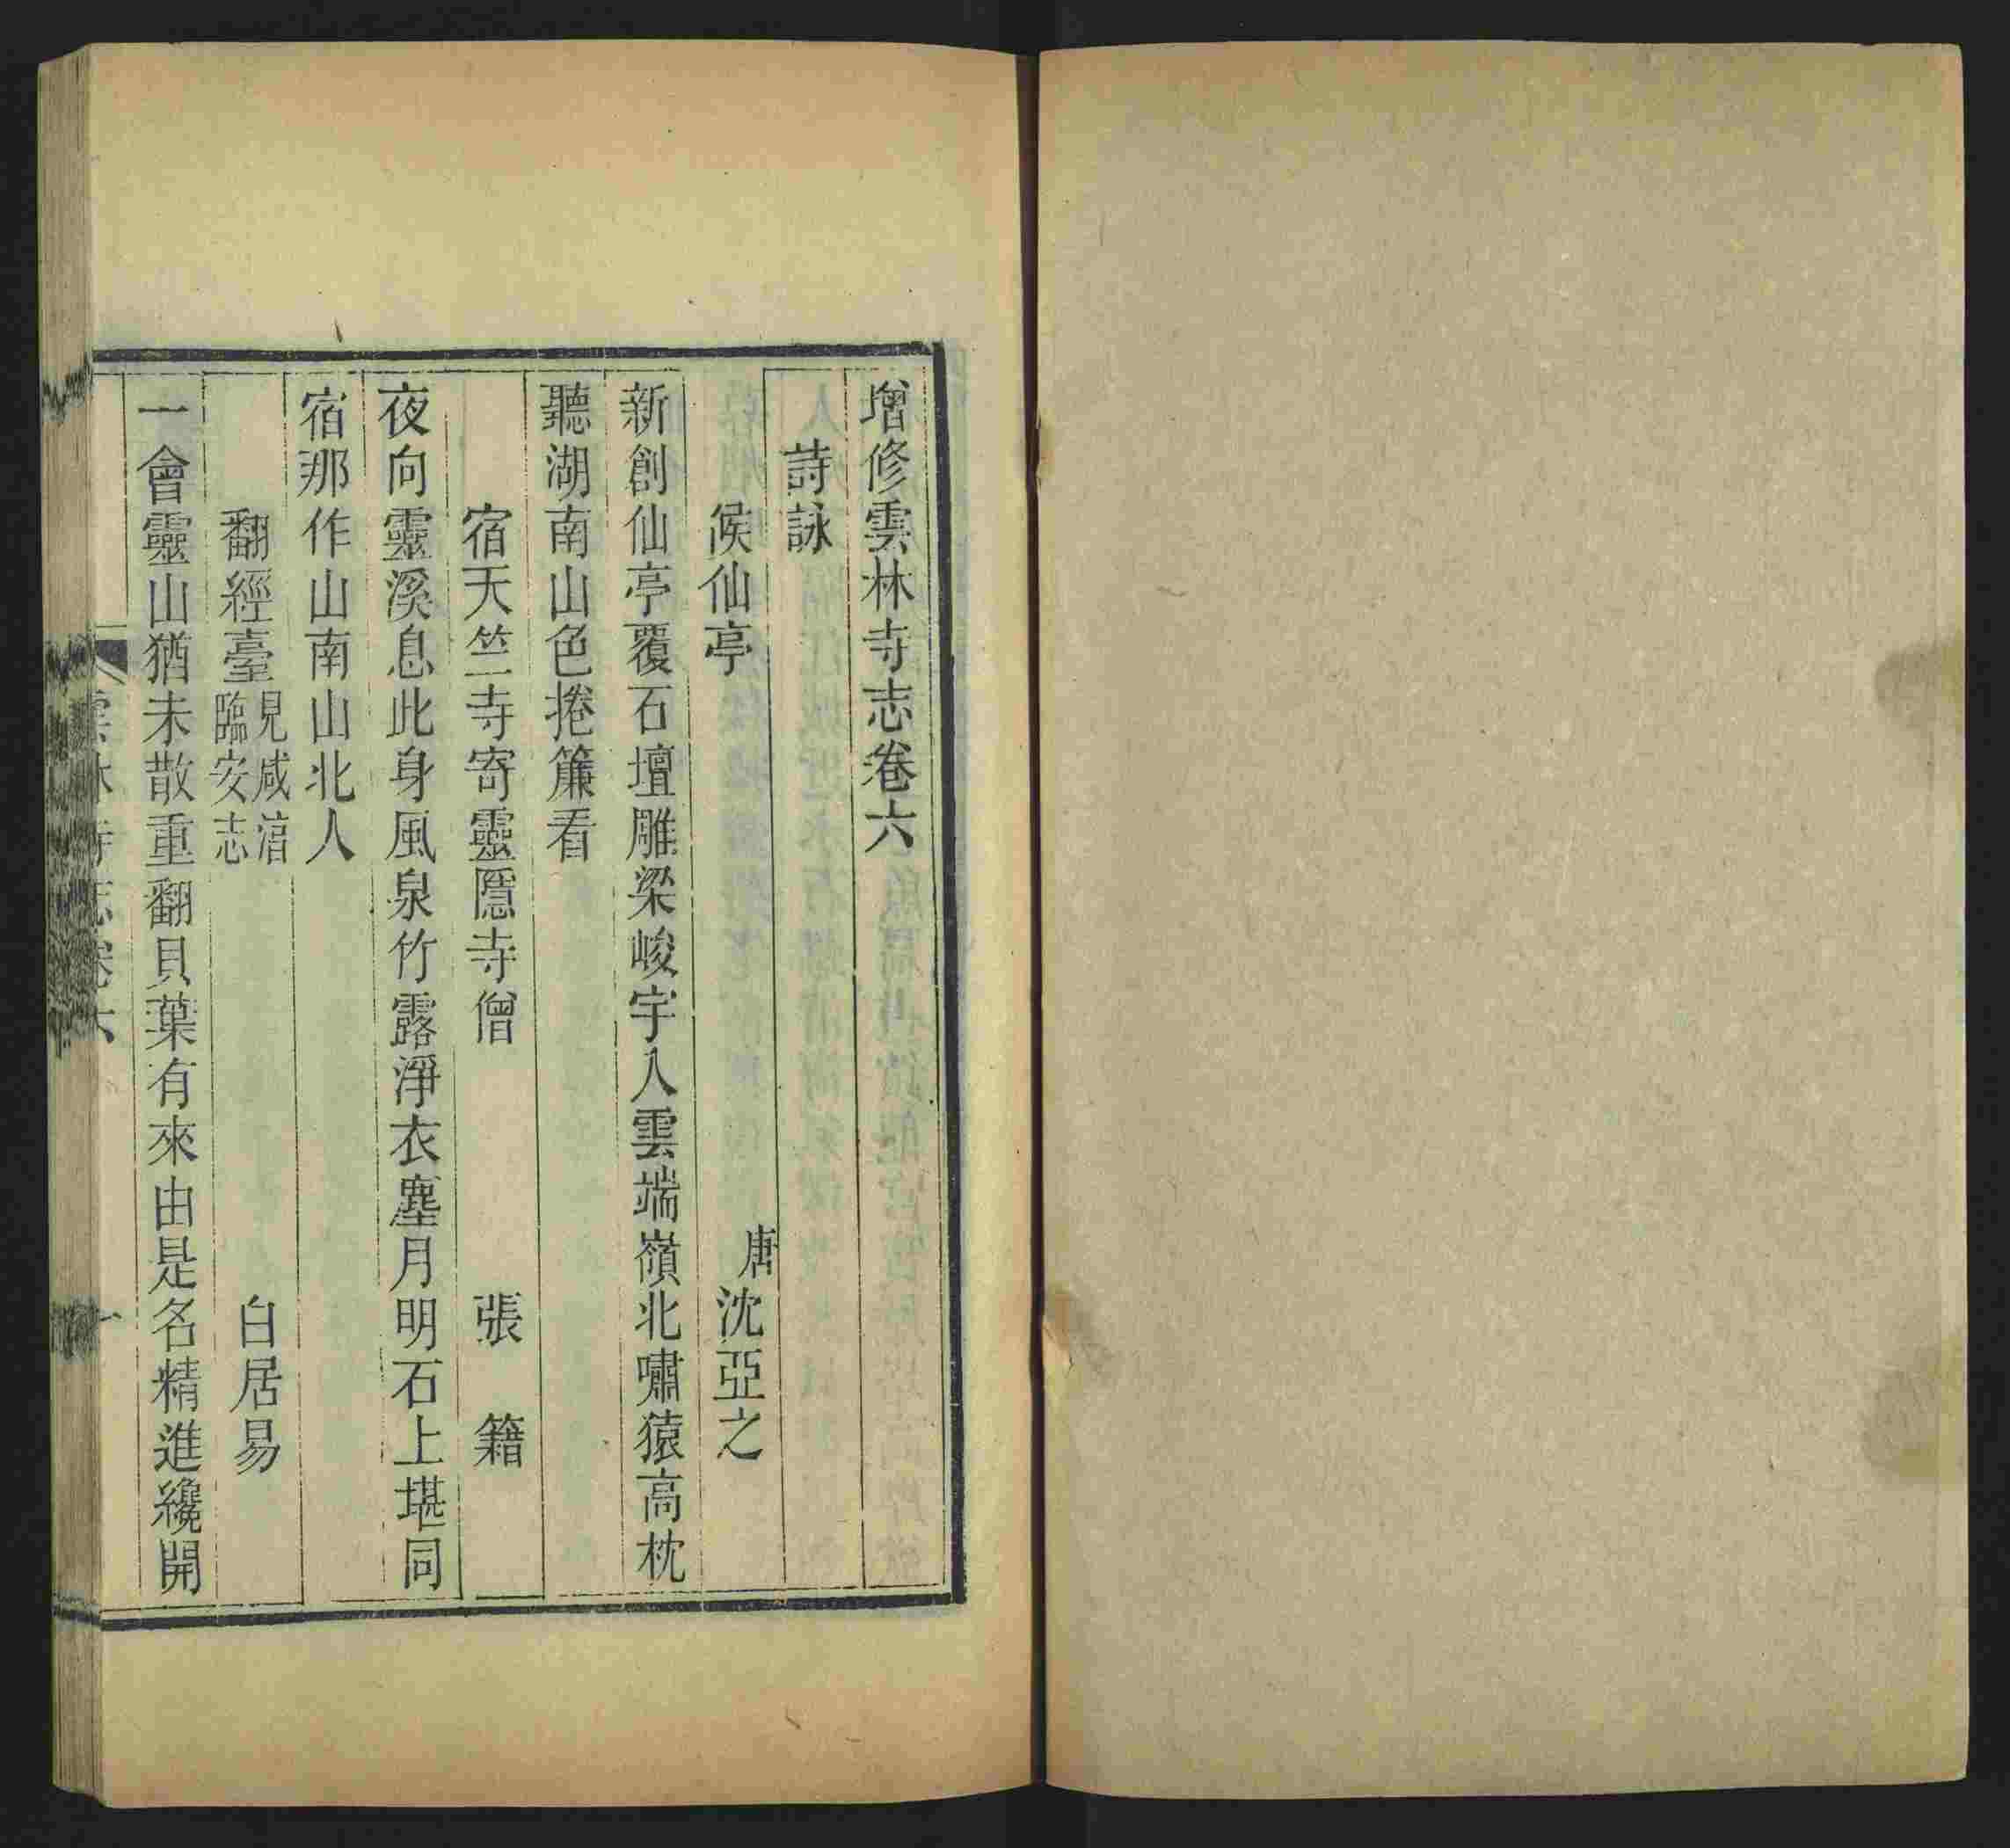 增修雲林寺志卷六
詩詠
候仙亭 唐沈亞之
新創仙亭覆石壇雕梁峻宇入雲端嶺北嘯猿高枕
聽湖南山色捲簾看
宿天竺寺寄靈隱寺僧 張籍
夜向靈溪息此身風泉竹露淨衣塵月明石上堪同
宿那作山南山北人
翻經臺見咸淳臨安志 白居易
一會靈山猶未散重翻貝葉有來由是名精進纔開
雲林寺志卷六 一